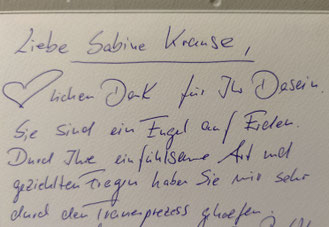 Liebe Sabine Krause,
♡lichen Dank für Ihr Dasein.
Sie sind ein Engel auf Erden.
Durch Ihre einfühlsame Art und
gezielten Fragen haben Sie mir sehr
durch den Trauerprozess geholfen.